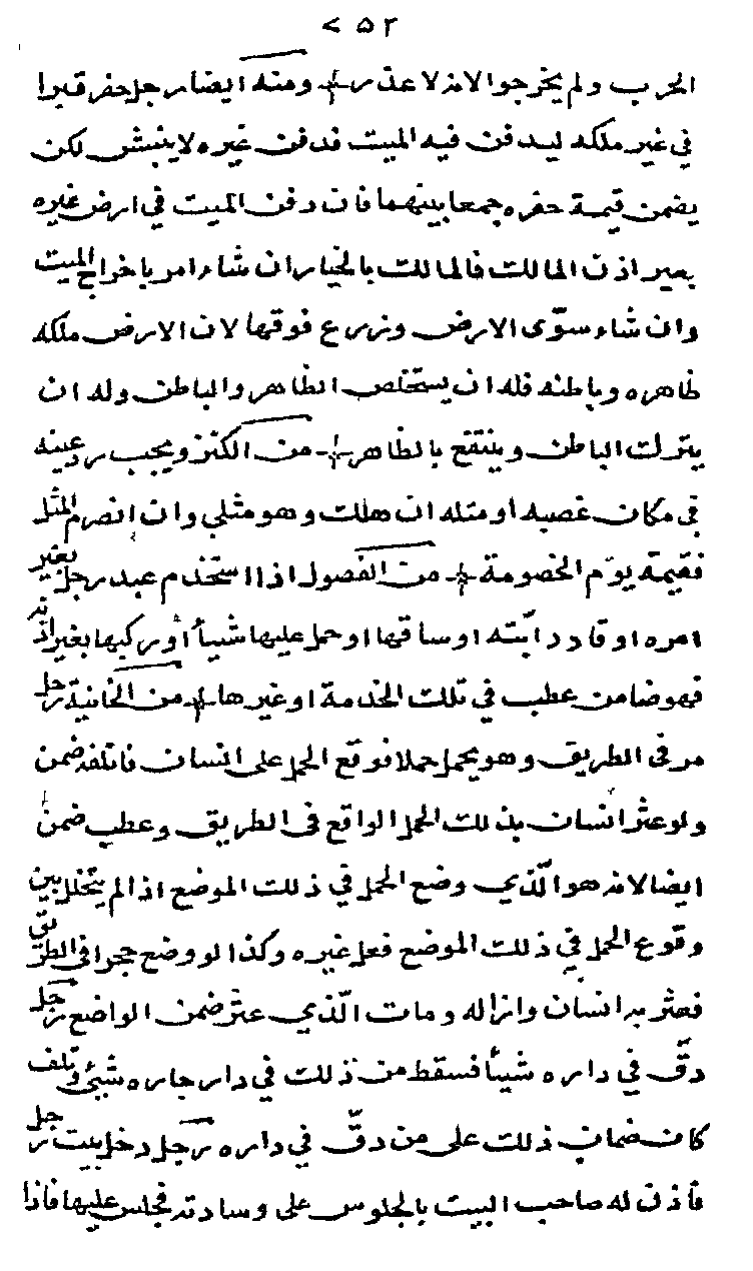 ٧٥٢
الحرب ولم يخرجوا لانه لا عذر ومنه ايضا رجل حفر قبرا
في غير ملكه ليدفن فيه الميت فدفن غيره لا ينبش لكن
يضمن قيمة حفره جمعا بينهما فان دفن الميت في ارض غيره
بغير اذن المالك فالمالك بالخيار ان شاء امر باخراج الميت
وان شاء سوّى الارض وزرع فوقها لان الارض ملكه
ظاهره وباطنه فله ان يستخلص الظاهر والباطن وله ان
يترك الباطن وينتفع بالظاهر من الكنز ويجب رد عينه
في مكان غصبه او مثله ان هلك وهو مثلي وان انصرم المثل
فقيمته يوم الخصومة من الفصول اذا استخدم عبد رجل بغير
امره او قاد دابّته او ساقها او حمل عليها شيأ أو ركبها بغير اذنه
فهو ضامن عطب في تلك الخدمة او غيرها من الخانية رجل
مر في الطريق وهو يحمل حملا فوقع الحمل على انسان فاتلفه ضمن
ولو عثر انسان بذلك الحمل الواقع في الطريق وعطب ضمن
ايضا لانه هو الّذي وضع الحمل في ذلك الموضع اذا لم يتخلل بين
وقوع الحمل في ذلك الموضع فعل غيره وكذا لو وضع حجرا في الطريق
فعثر به انسان وازاله ومات الّذي عثر ضمن الواضع رجل
دقّ في داره شيأ فسقط من ذلك في دار جاره شيئ وتلف
كان ضمان ذلك على من دقّ في داره رجل دخل بيت رجل
فاذن له صاحب البيت بالجلوس على وسادته فجلس عليها فاذا